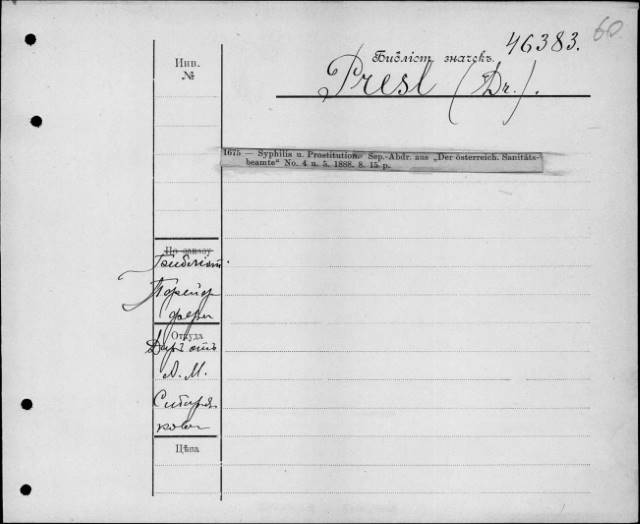 60
46383.
Библіот. значекъ.
Presl (Dr.).
Инв.
№
1675 — Syphilis u. Prostitution. Sep.-Abdr. aus „Der österreich. Sanitäts-
beamte“ No. 4 u. 5. 1888. 8. 15 p.
По заказу
Библіот.
Откуда
Даръ отъ
А. М.
Сибиря
кова
Цѣна